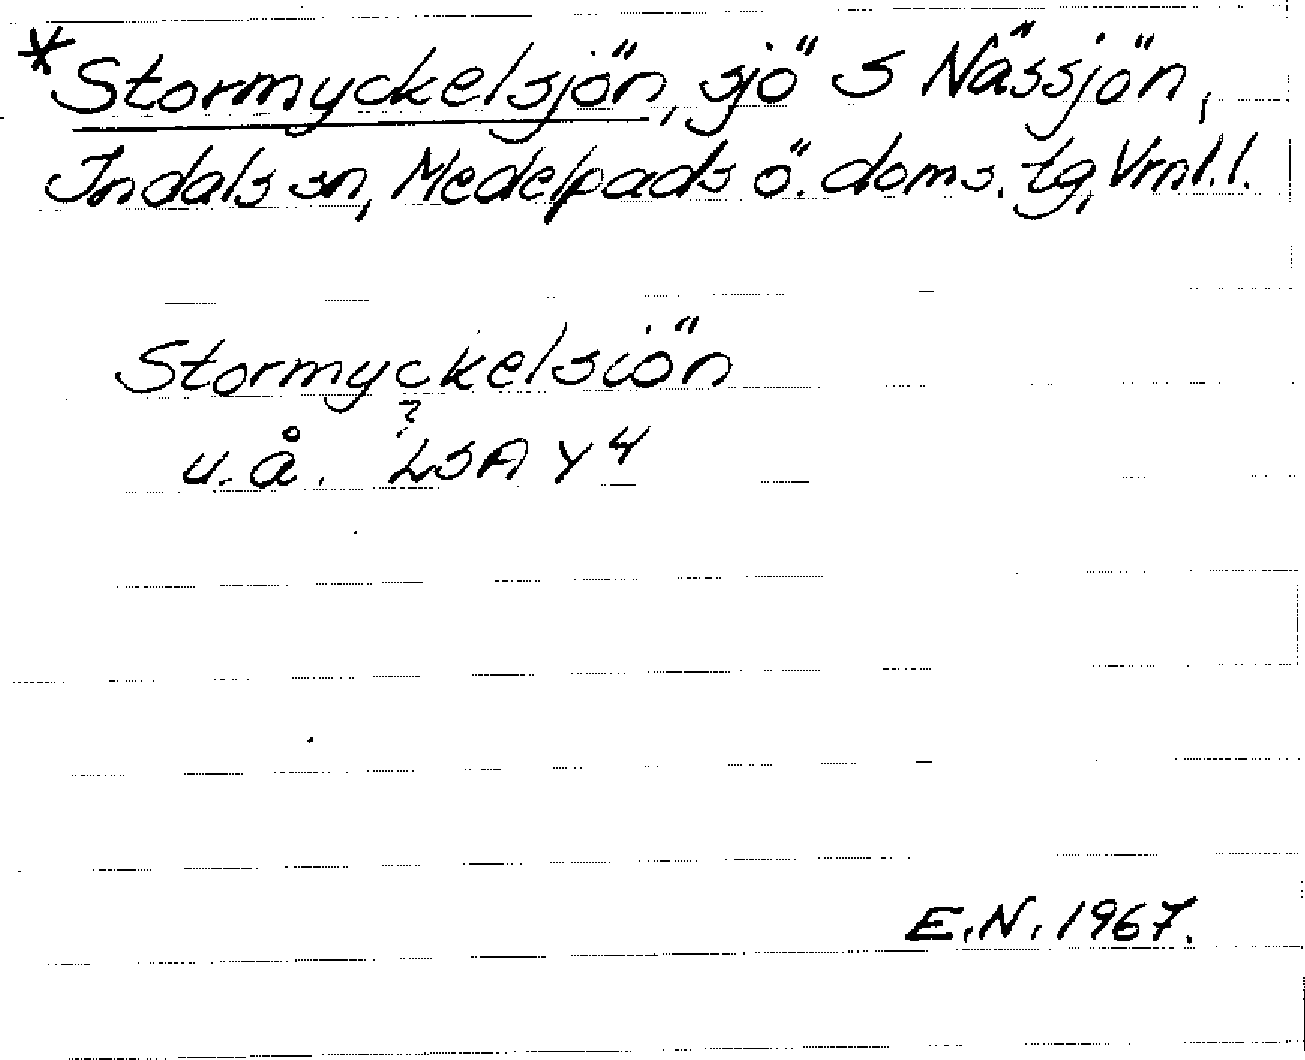 *Stormyckelsjön, sjö S Nässjön,
Indals sn, Medelpads ö. doms. tg, Vrnl. l.
Stormyckelsiön
?
u. å. LSA Y 4
E.N. 1967.